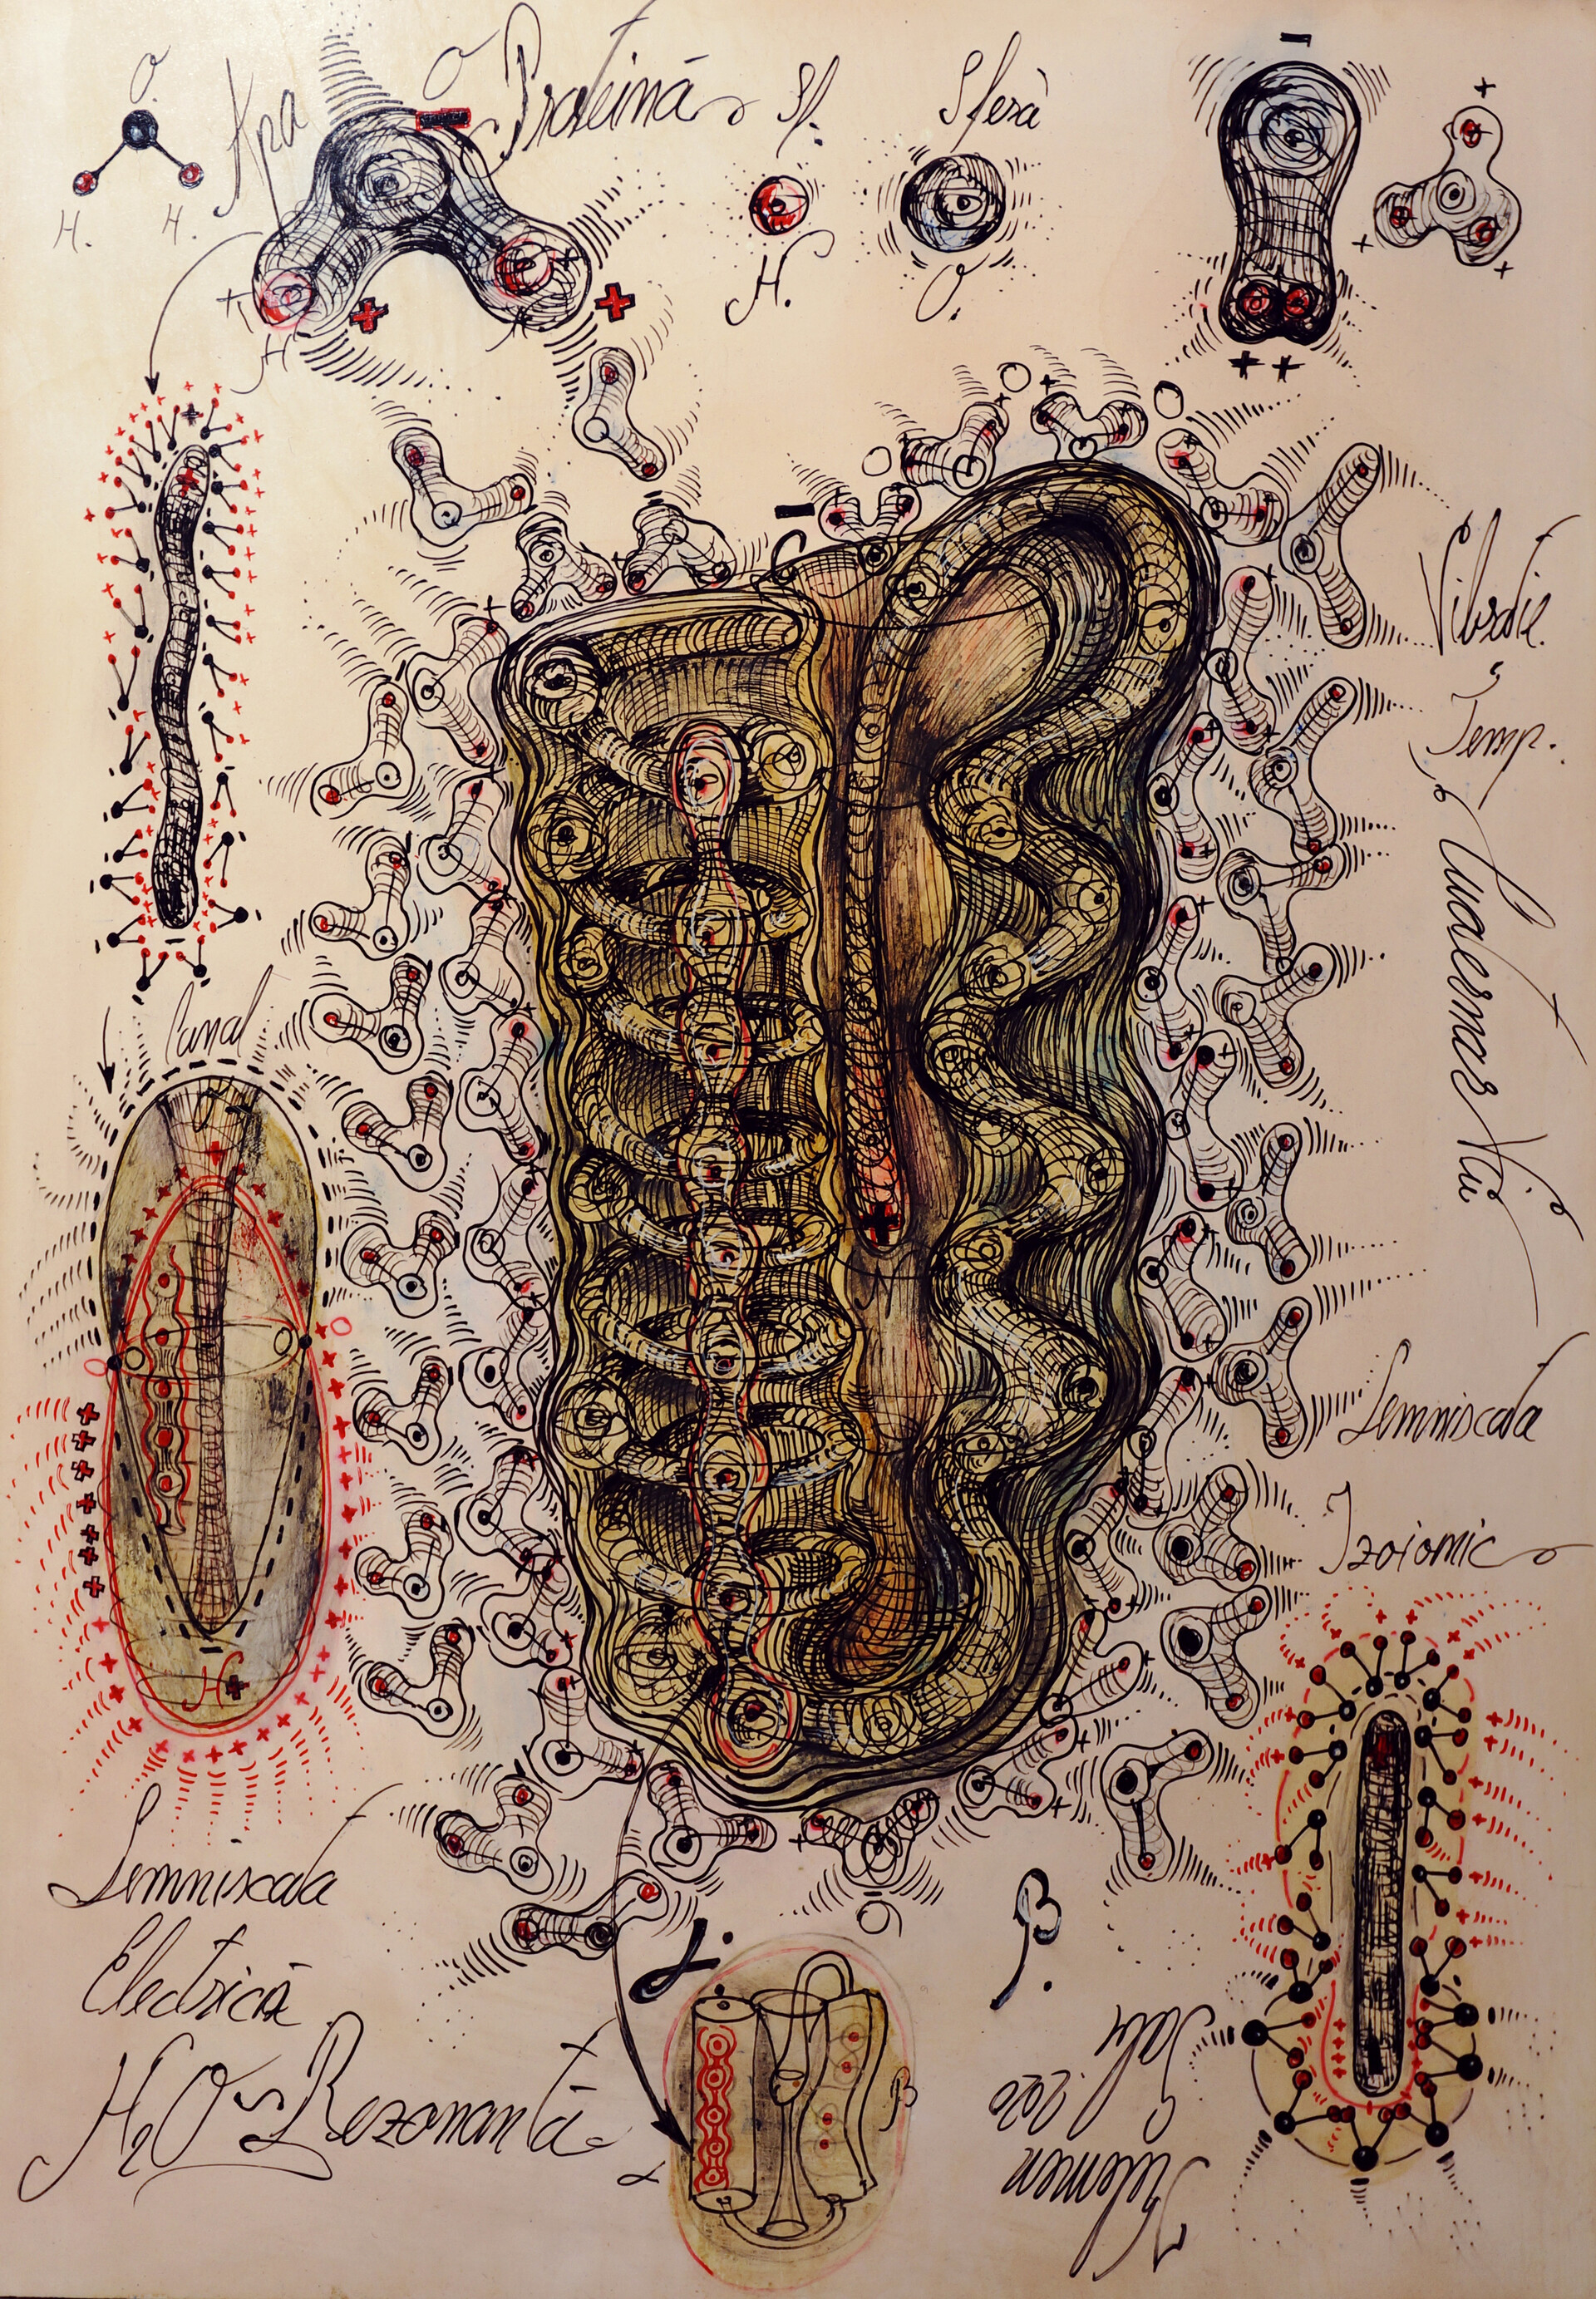 O
Apa
O
Proteină
Sf.
Sferă
H.
H.
H
H.
O.
Vibrație
Temp.
Cuaternar Viu
Canal
H
Lemniscata
Izoionic
Lemniscata
Electrică
H2O
Rezonanță
α
β.
β
α
2020